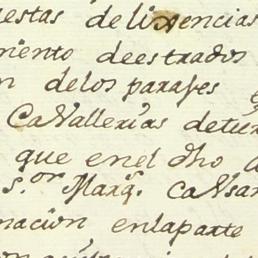 estas de lixencias
miento deestrados
n delos parajes
Cavallerias detur
que enel dho,
s.or Marq. Cavsar
nacion enlaparte